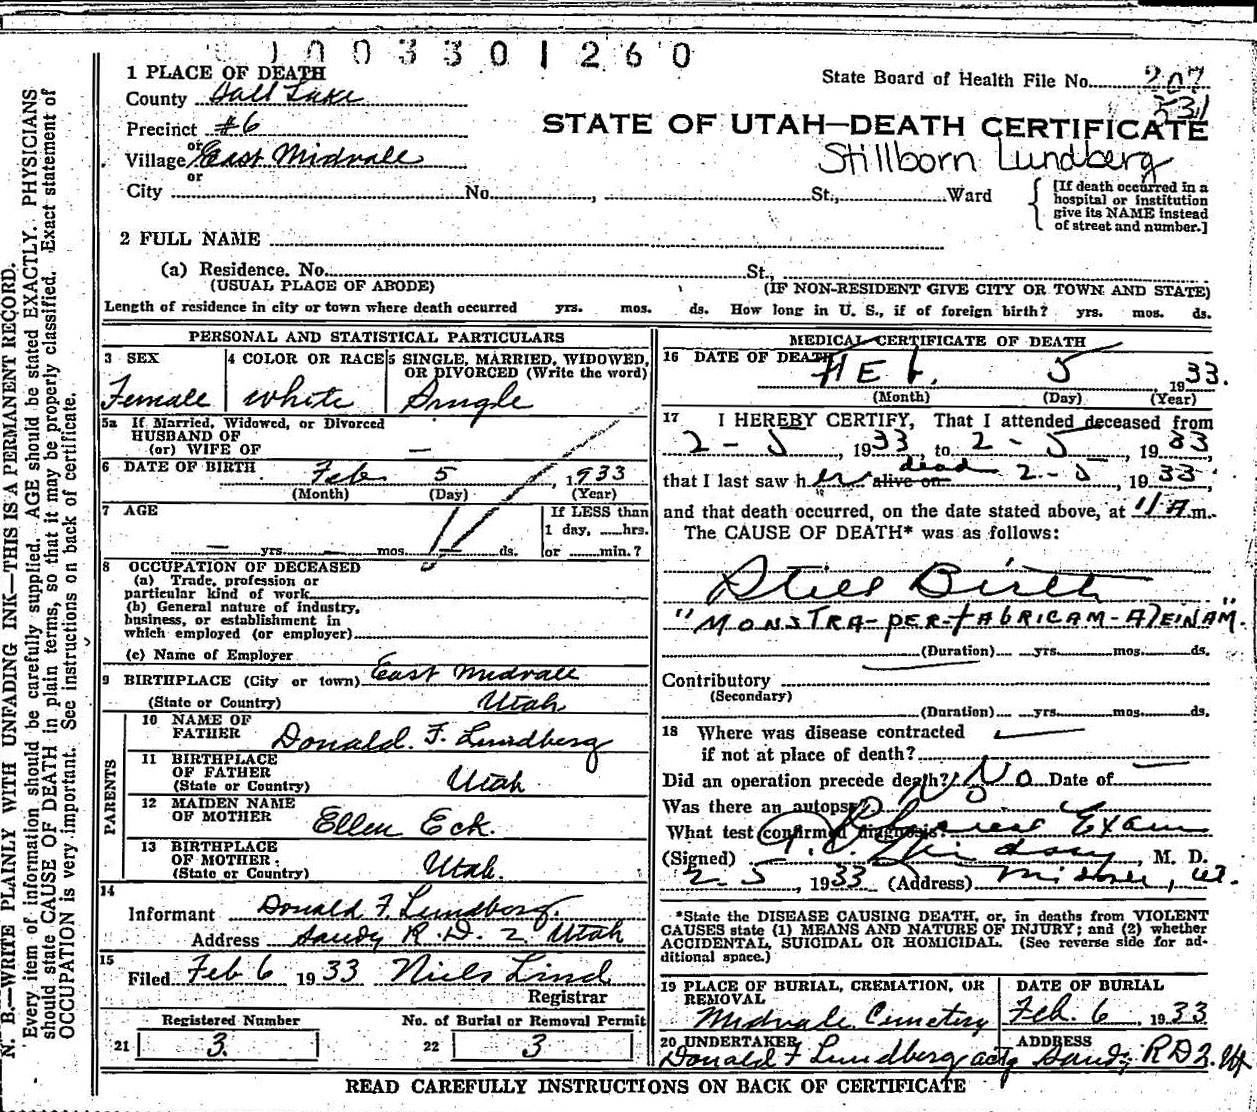 1003301260
1 PLACE OF DEATH
State Board of Health File No. 207
531
County Salt Lake
Precinct #6
STATE OF UTAH—DEATH CERTIFICATE
or
Village East Midvale
Stillborn Lundberg
or
City No. , St., Ward
[If death occurred in a hospital or institution give its NAME instead of street and number.]
2 FULL NAME
(a) Residence. No. St.,
(USUAL PLACE OF ABODE) (IF NON-RESIDENT GIVE CITY OR TOWN AND STATE)
Length of residence in city or town where death occurred yrs. mos. ds. How long in U. S., if of foreign birth? yrs. mos. ds.
N. B.—WRITE PLAINLY WITH UNFADING INK—THIS IS A PERMANENT RECORD.
Every item of information should be carefully supplied. AGE should be stated EXACTLY. PHYSICIANS
should state CAUSE OF DEATH in plain terms, so that it may be properly classified. Exact statement of
OCCUPATION is very important. See instructions on back of certificate.
PERSONAL AND STATISTICAL PARTICULARS
3 SEX
Female
4 COLOR OR RACE
White
5 SINGLE, MARRIED, WIDOWED,
OR DIVORCED (Write the word)
Single
5a If Married, Widowed, or Divorced
HUSBAND OF
(or) WIFE OF —
6 DATE OF BIRTH Feb 5, 1933
(Month) (Day) (Year)
7 AGE
— yrs. — mos. — ds.
If LESS than
1 day, hrs.
or min.?
8 OCCUPATION OF DECEASED
(a) Trade, profession or
particular kind of work
(b) General nature of industry,
business, or establishment in
which employed (or employer)
(c) Name of Employer
9 BIRTHPLACE (City or town) East Midvale
(State or Country) Utah
PARENTS
10 NAME OF
FATHER Donald. F. Lundberg
11 BIRTHPLACE
OF FATHER
(State or Country) Utah
12 MAIDEN NAME
OF MOTHER Ellen Eck.
13 BIRTHPLACE
OF MOTHER
(State or Country) Utah.
14
Informant Donald F. Lundberg.
Address Sandy R.D. 2 Utah
15
Filed Feb 6 1933 Niels Lind
Registrar
Registered Number
21 3.
No. of Burial or Removal Permit
22 3
MEDICAL CERTIFICATE OF DEATH
16 DATE OF DEATH FEb. 5 1933.
(Month) (Day) (Year)
17 I HEREBY CERTIFY, That I attended deceased from
2-5, 1933, to 2-5, 1933,
that I last saw her alive on dead 2-5, 1933,
and that death occurred, on the date stated above, at 11 A m.
The CAUSE OF DEATH* was as follows:
Still Birth
"MONSTRA-PER-FABRICAM-ALEINAM".
(Duration) yrs. mos. ds.
Contributory
(Secondary)
(Duration) yrs. mos. ds.
18 Where was disease contracted
if not at place of death? —
Did an operation precede death? No Date of —
Was there an autopsy? No
What test confirmed diagnosis? Exam
(Signed) Lindsay, M. D.
2-5, 1933 (Address) Midvale, Ut.
*State the DISEASE CAUSING DEATH, or, in deaths from VIOLENT
CAUSES state (1) MEANS AND NATURE OF INJURY; and (2) whether
ACCIDENTAL, SUICIDAL OR HOMICIDAL. (See reverse side for ad-
ditional space.)
19 PLACE OF BURIAL, CREMATION, OR
REMOVAL
Midvale Cemetery
DATE OF BURIAL
Feb. 6, 1933
20 UNDERTAKER
Donald F Lundberg actg
ADDRESS
Sandy RD 2. Ut
READ CAREFULLY INSTRUCTIONS ON BACK OF CERTIFICATE